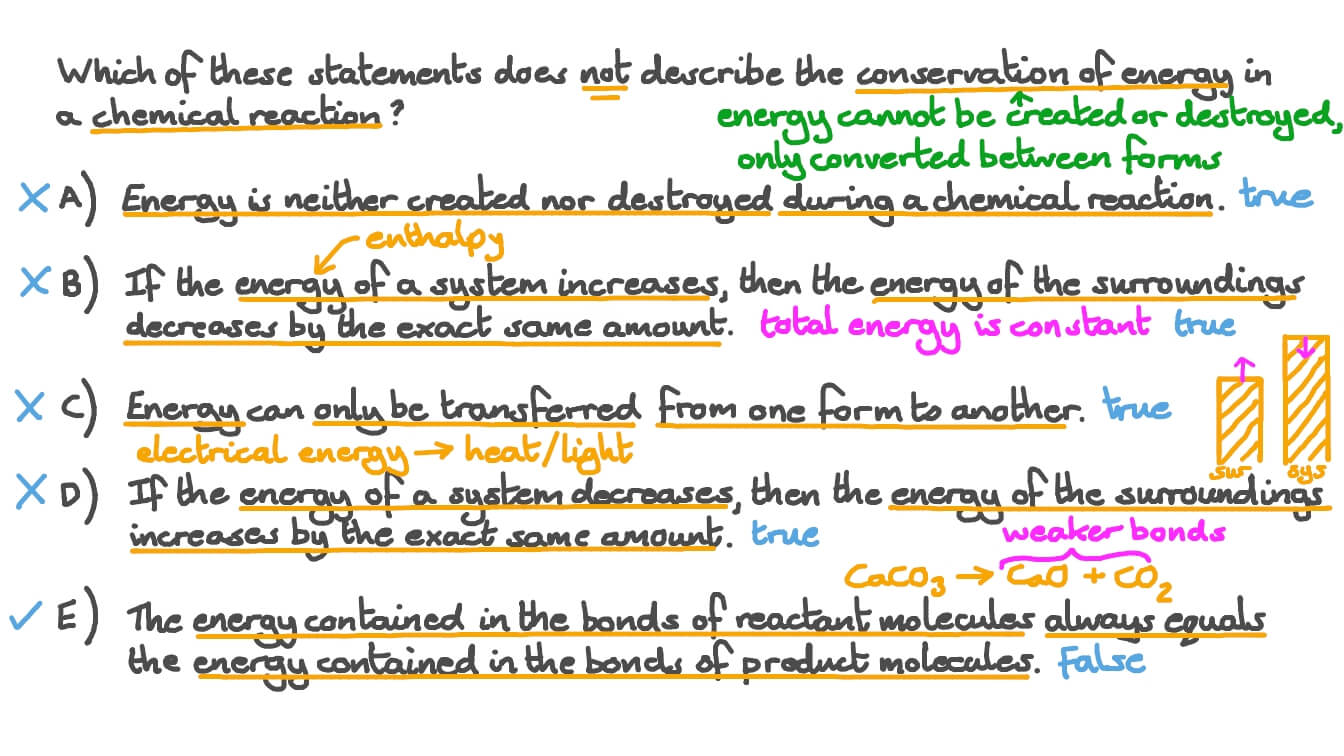 Which of these statements does not describe the conservation of energy in
a chemical reaction?
energy cannot be created or destroyed,
only converted between forms
X A) Energy is neither created nor destroyed during a chemical reaction. true
enthalpy
X B) If the energy of a system increases, then the energy of the surroundings
decreases by the exact same amount. total energy is constant true
X C) Energy can only be transferred from one form to another. true
electrical energy → heat/light
sur sys
X D) If the energy of a system decreases, then the energy of the surroundings
increases by the exact same amount. true
weaker bonds
CaCO₃ → CaO + CO₂
✓ E) The energy contained in the bonds of reactant molecules always equals
the energy contained in the bonds of product molecules. False